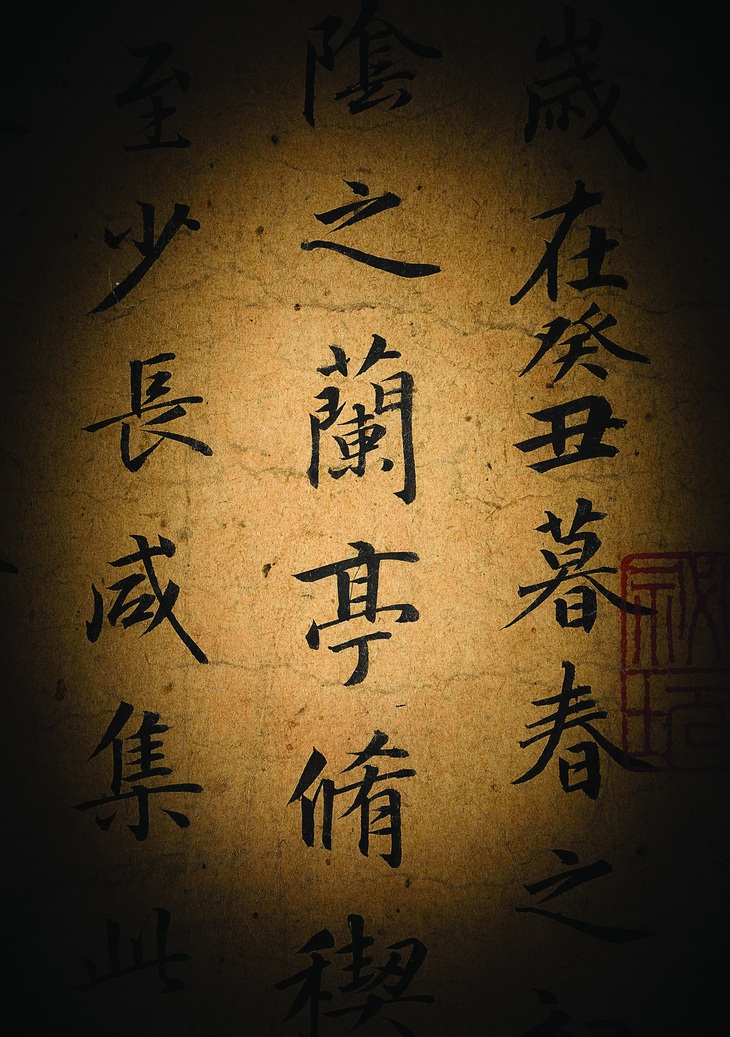 歲在癸丑暮春之
陰之蘭亭脩稧
至少長咸集此